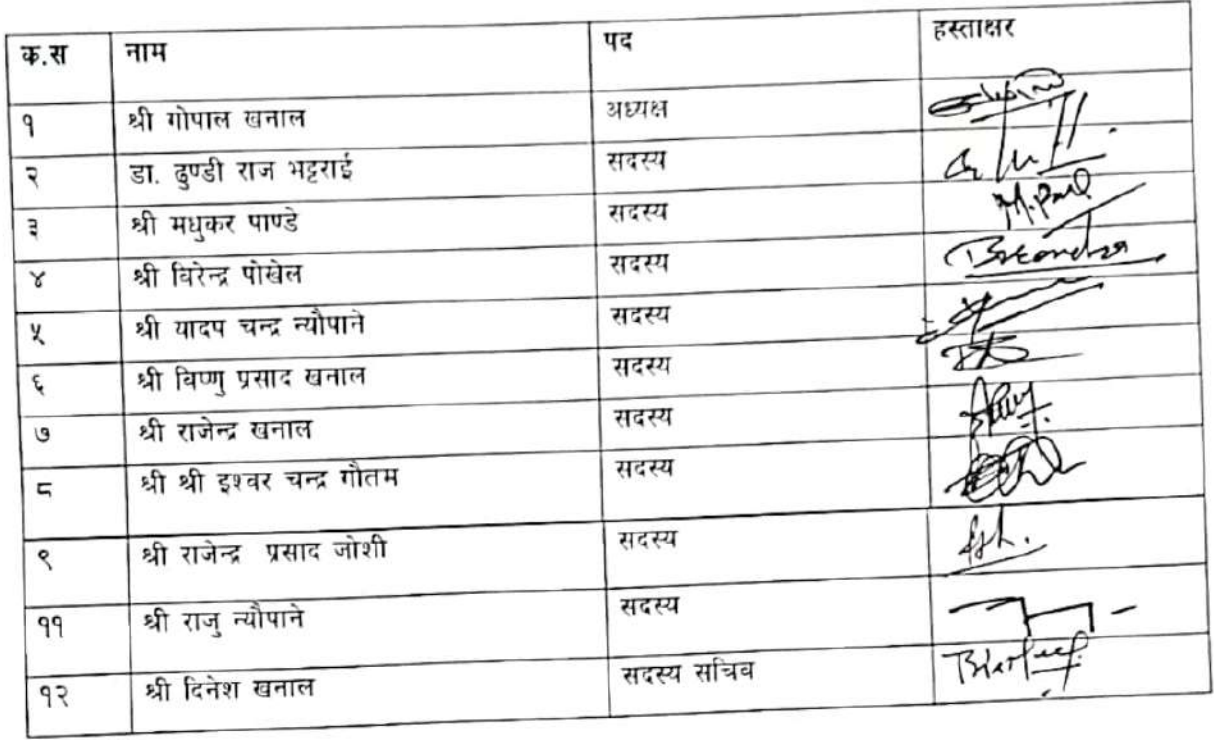 क.स नाम पद हस्ताक्षर
१ श्री गोपाल खनाल अध्यक्ष
२ डा. ढुण्डी राज भट्टराई सदस्य
३ श्री मधुकर पाण्डे सदस्य
४ श्री विरेन्द्र पोखेल सदस्य
५ श्री यादप चन्द्र न्यौपाने सदस्य
६ श्री विष्णु प्रसाद खनाल सदस्य
७ श्री राजेन्द्र खनाल सदस्य
८ श्री श्री इश्वर चन्द्र गौतम सदस्य
९ श्री राजेन्द्र प्रसाद जोशी सदस्य
११ श्री राजु न्यौपाने सदस्य
१२ श्री दिनेश खनाल सदस्य सचिव